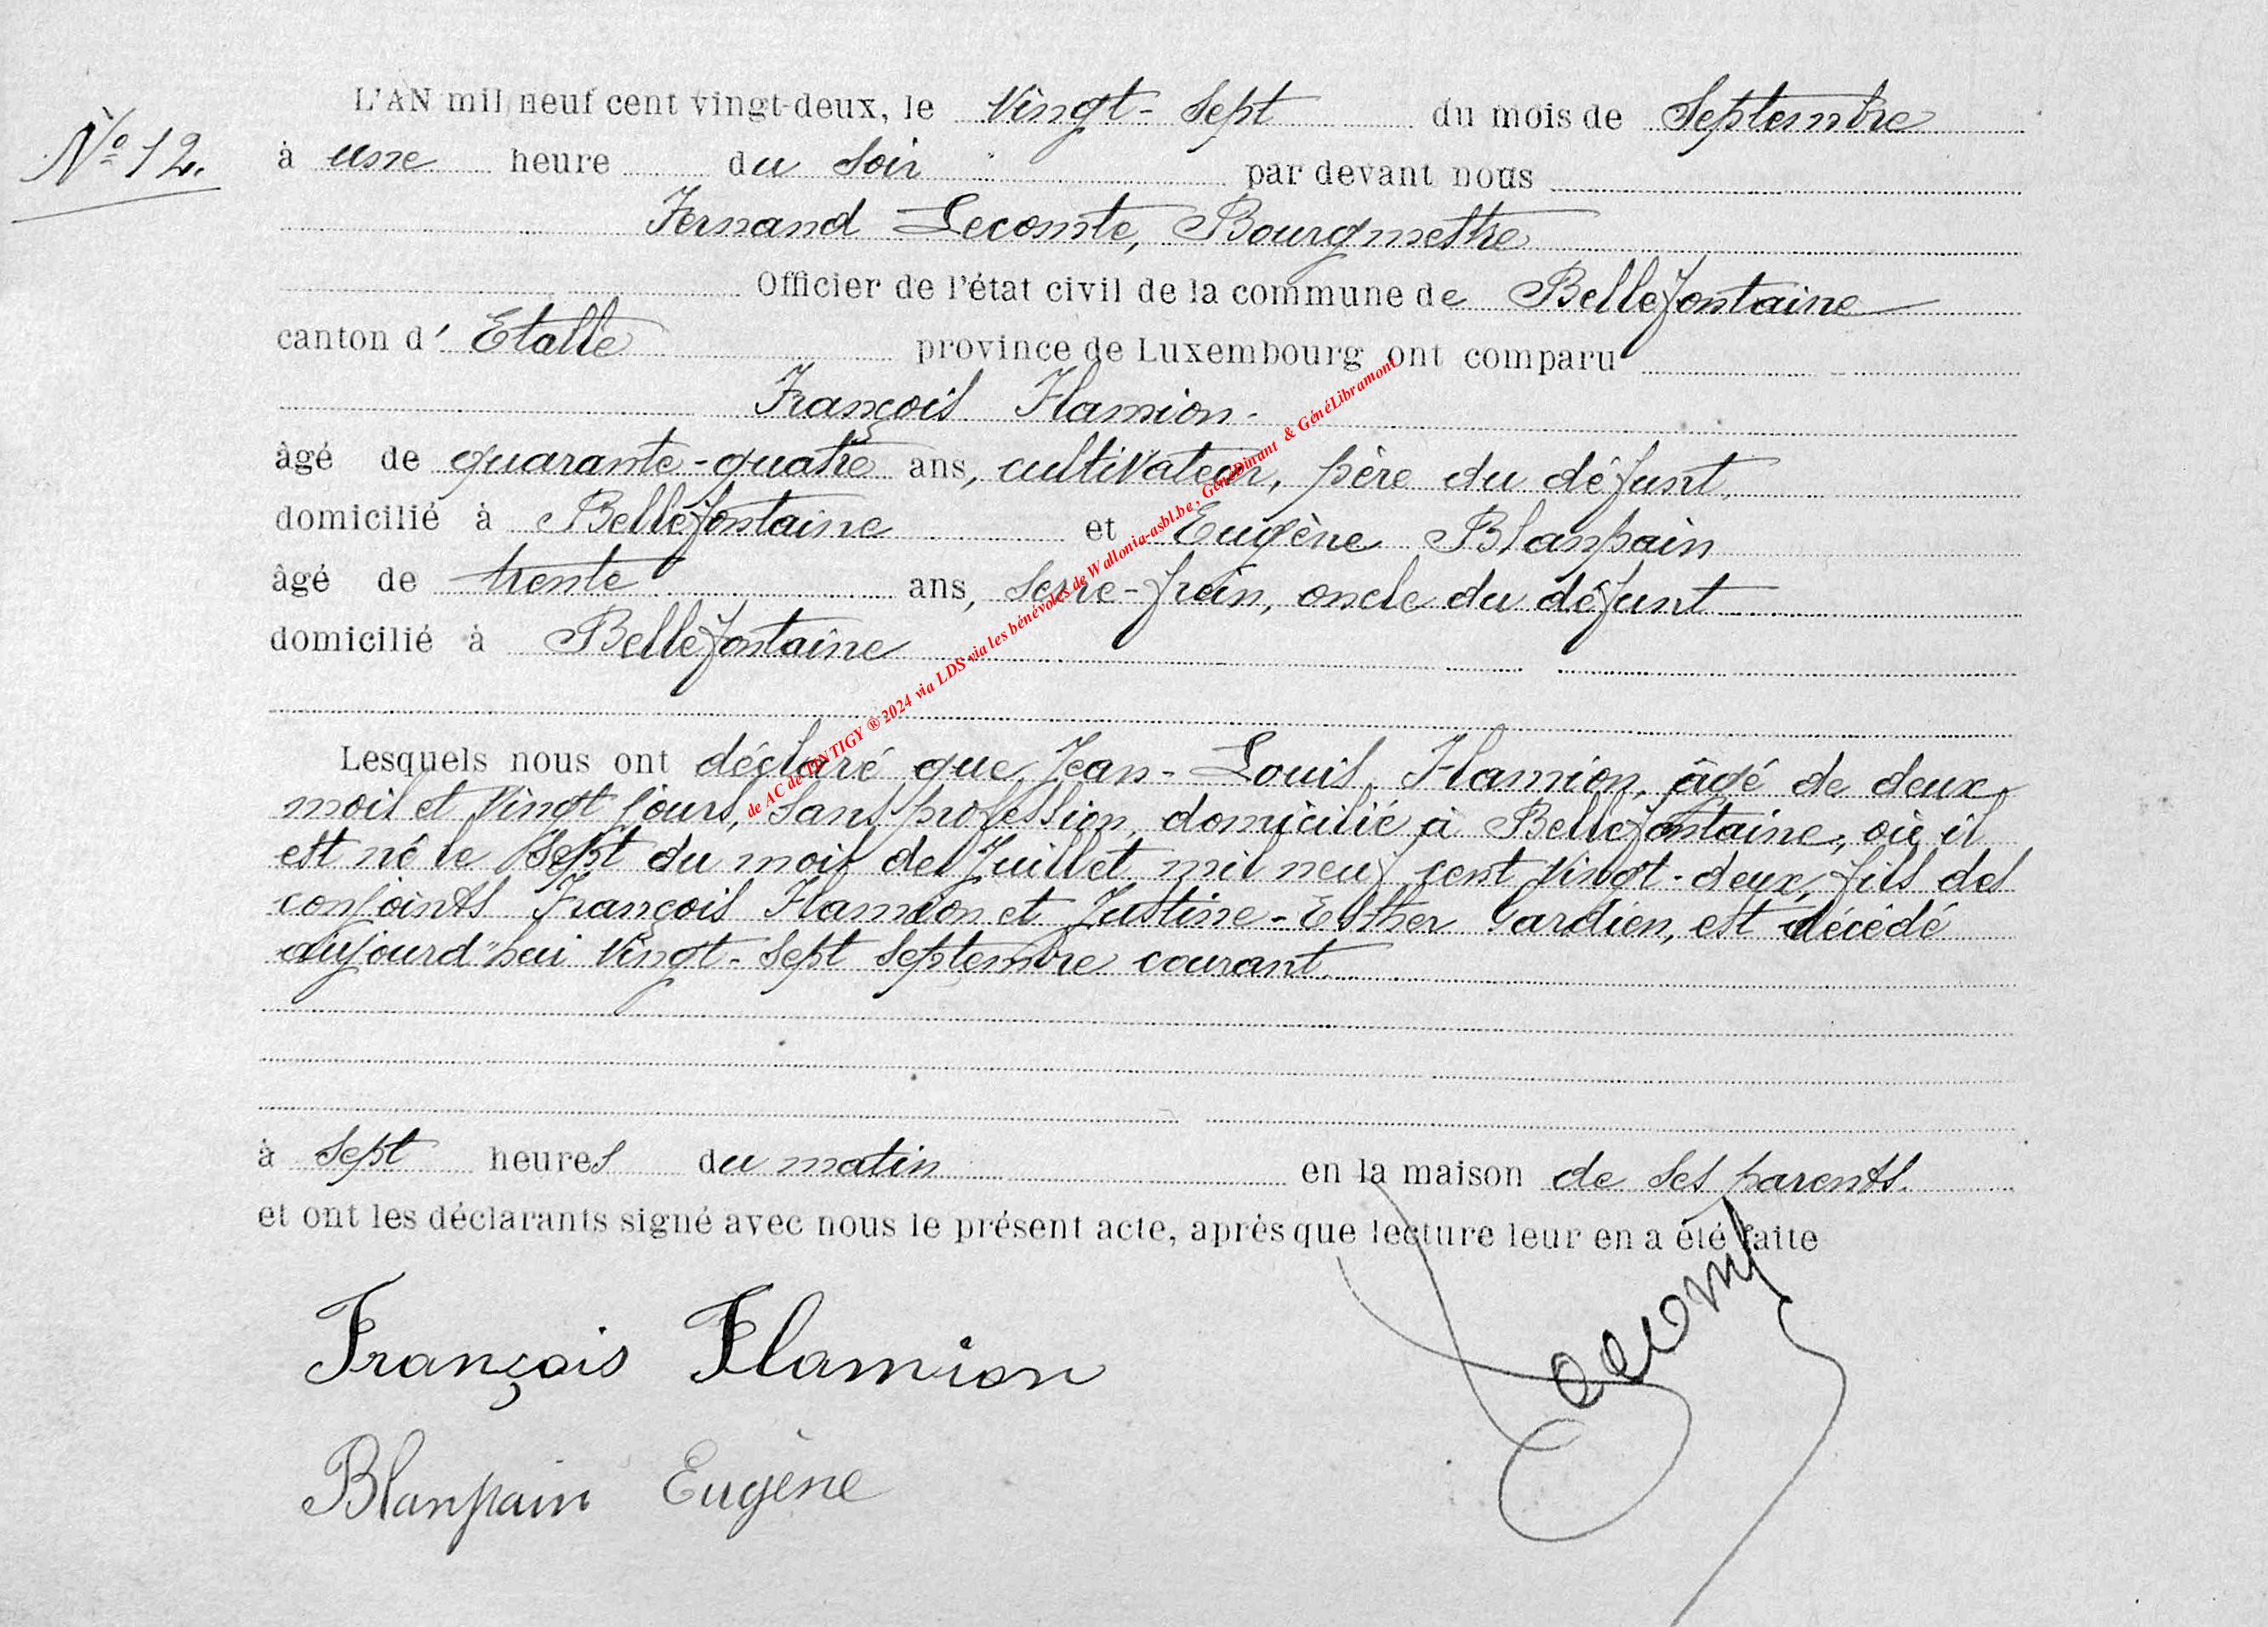 N° 12.
L'AN mil neuf cent vingt-deux, le Vingt-Sept du mois de Septembre
à une heure du soir par devant nous
Fernand Lecomte, Bourgmettre
Officier de l'état civil de la commune de Bellefontaine
canton d' Etalle province de Luxembourg ont comparu
François Flamion.
âgé de quarante-quatre ans, cultivateur, père du défunt,
domicilié à Bellefontaine et Eugène Blanpain
âgé de trente ans, serre-frein, oncle du défunt
domicilié à Bellefontaine
Lesquels nous ont déclaré que, Jean-Louis, Flamion, âgé de deux
mois et Vingt jours, sans profession, domicilié à Bellefontaine, où il
est né le sept du mois de Juillet mil neuf cent vingt-deux, fils des
conjoints François Flamion et Justine-Esther Cardien, est décédé
aujourd'hui Vingt-Sept Septembre courant
à sept heures du matin en la maison de ses parents.
et ont les déclarants signé avec nous le présent acte, après que lecture leur en a été faite
François Flamion
Lecomte
Blanpain Eugène
de AC de TINTIGY ® 2024 via LDS via les bénévoles de Wallonia-asbl.be, GénéDinant & GénéLibramont